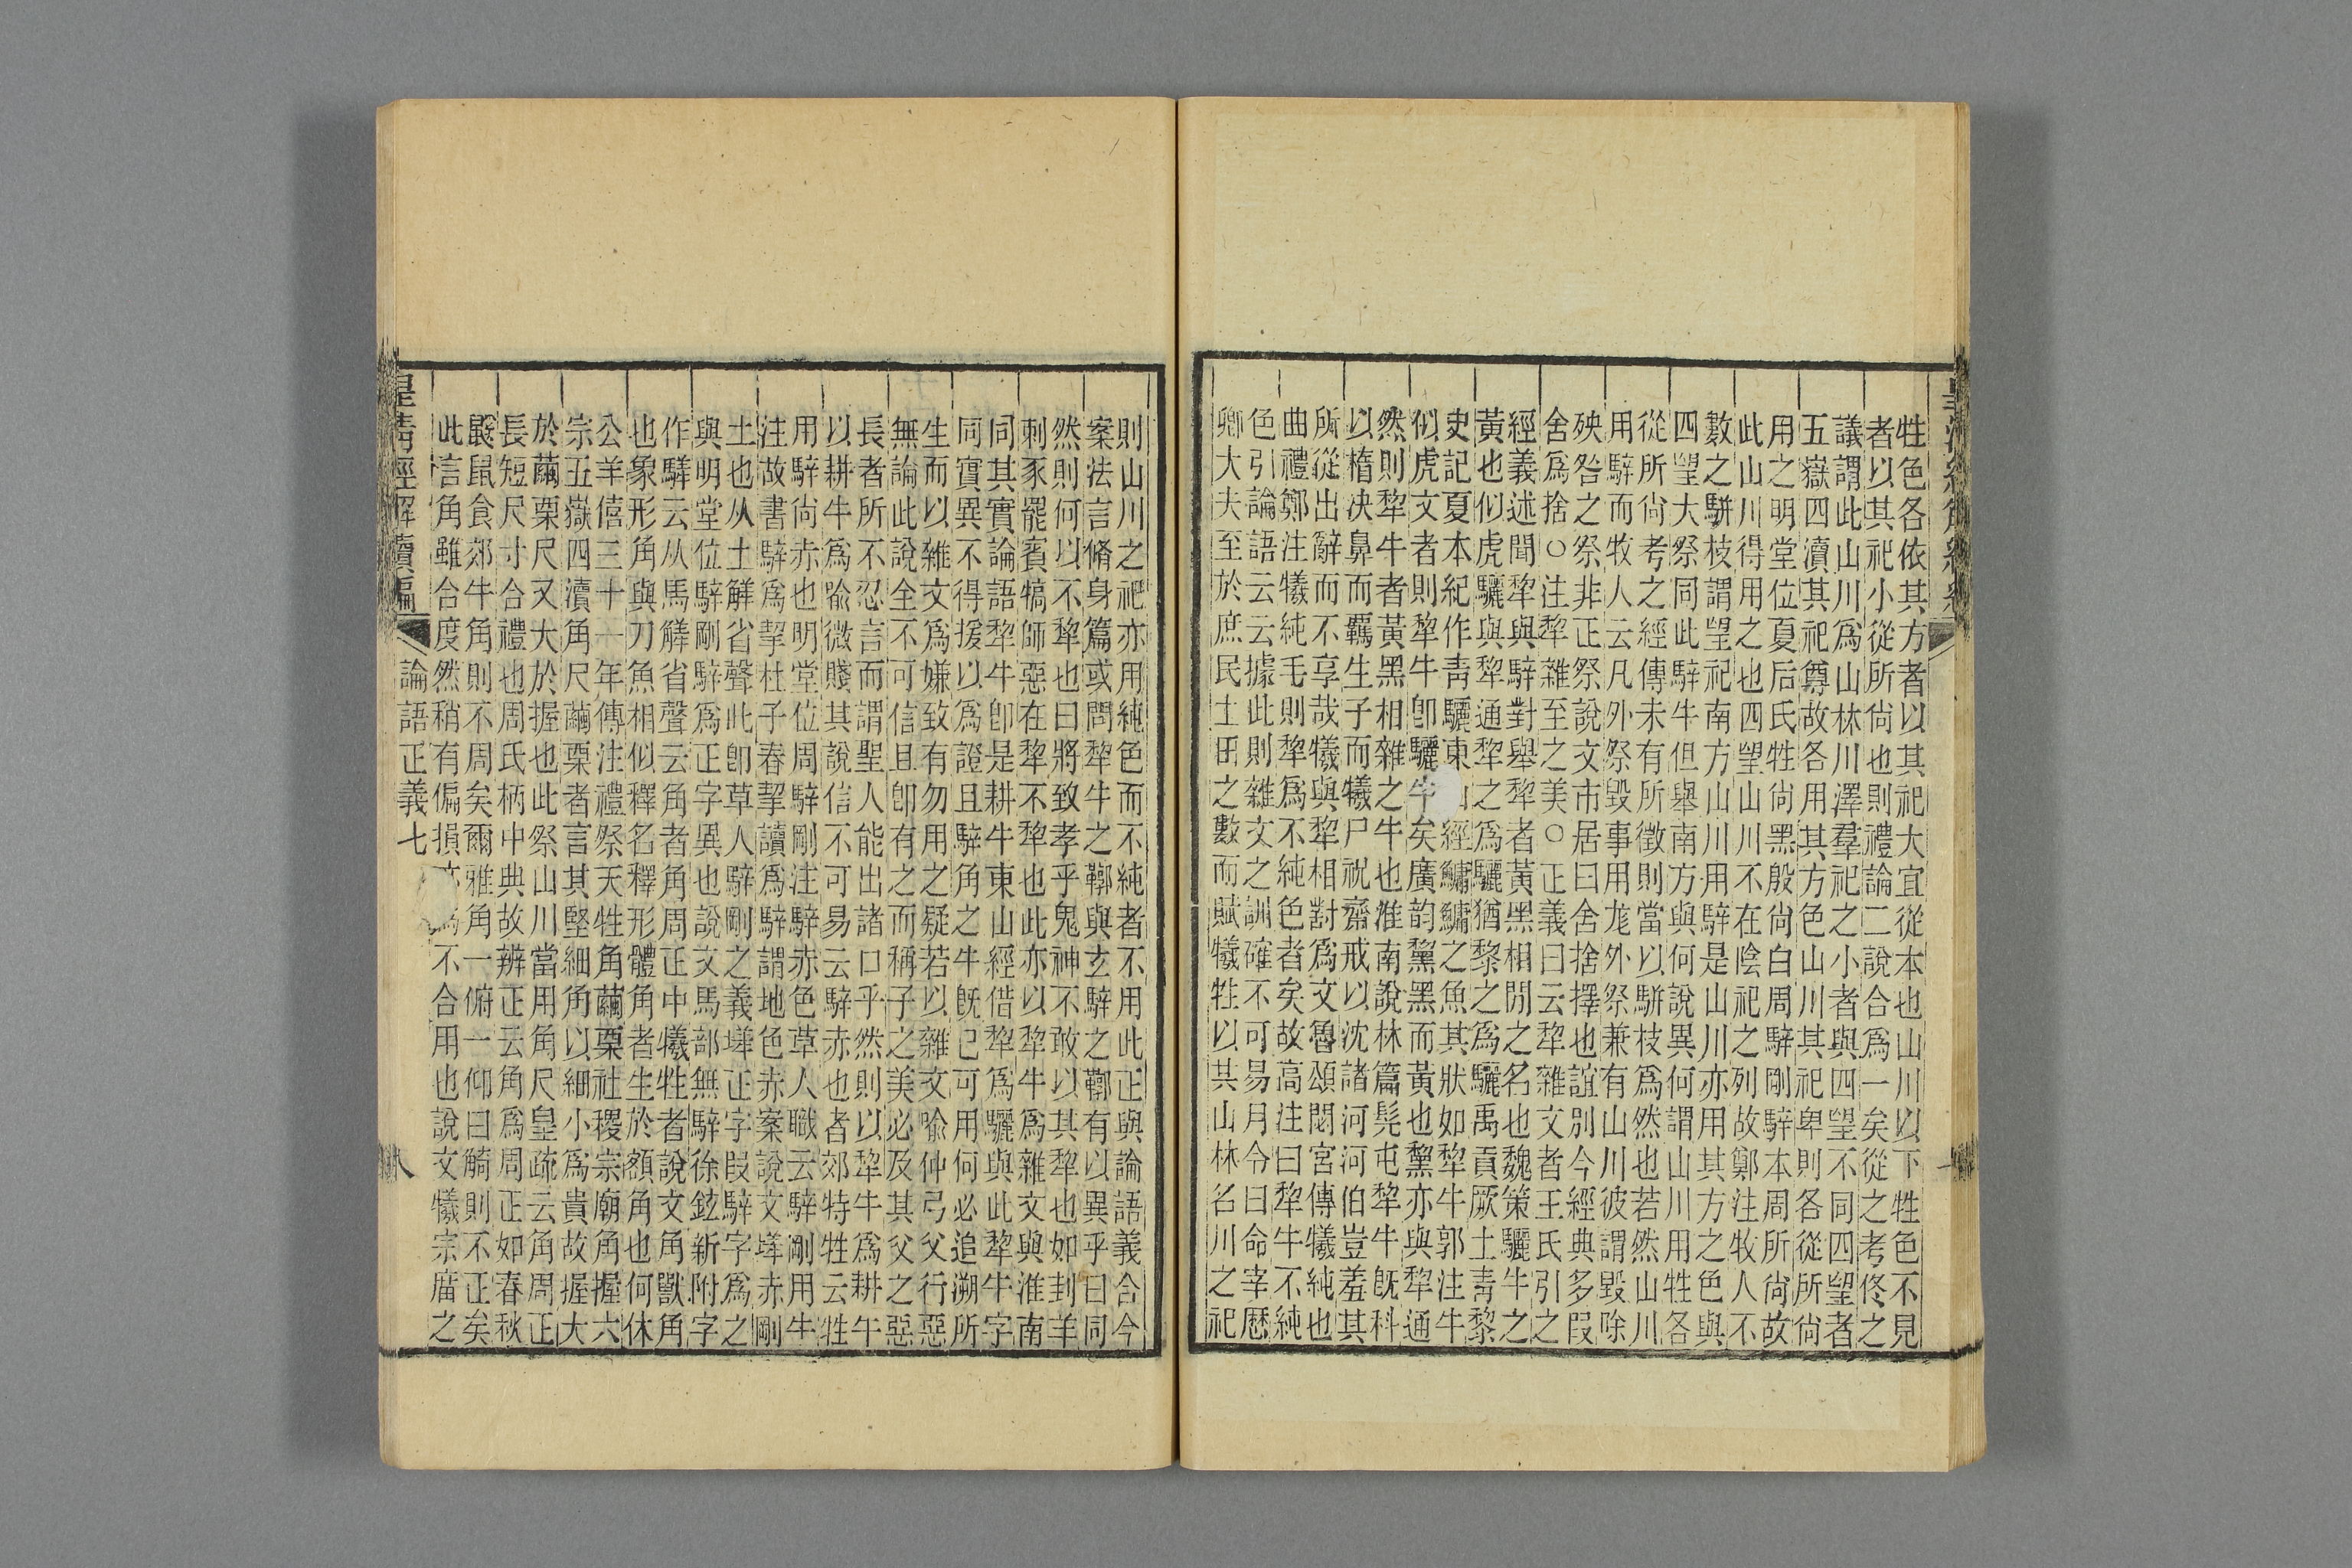 牲色各依其方者以其祀大宜從本也山川以下牲色不見
者以其祀小從所尚也則禮論二說合爲一矣從之考佟之
議謂此山川爲山林川澤羣祀之小者與四望不同四望者
五嶽四瀆其祀尊故各用其方色山川其祀卑則各從所尚
用之明堂位夏后氏牲尚黑殷尚白周騂剛騂本周所尚故
此山川得用之也四望山川不在陰祀之列故鄭注牧人不
數之駢枝謂望祀南方山川用騂是山川亦用其方之色與
四望大祭同此騂牛但舉南方與何說異何謂山川用牲各
從所尚考之經傳未有所徵則當以駢枝爲然也若然山川
用騂而牧人云凡外祭毀事用尨外祭兼有山川彼謂毀除
殃咎之祭非正祭說文市居曰舍捨擇也誼別今經典多叚
舍爲捨○注犂雜至之美○正義曰云犂雜文者王氏引之
經義述聞犂與騂對舉犂者黃黑相閒之名也魏策驪牛之
黃也似虎驪與犂通犂之爲驪猶黎之爲驪禹貢厥土青黎
史記夏本紀作青驪東經鱅鱅之魚其狀如犂牛郭注牛
似虎文者則犂牛卽驪牛矣廣韵黧黑而黃也黧亦與犂通
然則犂牛者黃黑相雜之牛也淮南說林篇髡屯犂牛旣科
以橢决鼻而羈生子而犧尸祝齋戒以沈諸河河伯豈羞其
所從出辭而不享哉犧與犂相對爲文魯頌閟宮傳犧純也
曲禮鄭注犧純毛則犂爲不純色者矣故高注曰犂牛不純
色引論語云云據此則雜文之訓確不可易月令曰命宰厯
卿大夫至於庶民土田之數而賦犧牲以共山林名川之祀
則山川之祀亦用純色而不純者不用此正與論語義合今
案法言脩身篇或問犂牛之鞹與玄騂之鞹有以異乎曰同
然則何以不犂也曰將致孝乎鬼神不敢以其犂也如刲羊
刺豕罷賓犒師惡在犂不犂也此亦以犂牛爲雜文與淮南
同其實論語犂牛卽是耕牛東山經借犂爲驪與此犂牛字
同實異不得援以爲證且騂角之牛旣已可用何必追溯所
生而以雜文爲嫌致有勿用之疑若以雜文喻仲弓父行惡
無論此說全不可信且卽有之而稱子之美必及其父之惡
長者所不忍言而謂聖人能出諸口乎然則以犂牛爲耕牛
以耕牛爲喻微賤其說信不可易云騂赤也者郊特牲云牲
用騂尚赤也明堂位周騂剛注騂赤色草人職云騂剛用牛
注故書騂爲挈杜子春挈讀爲騂謂地色赤案說文垟赤剛
土也从土觲省聲此卽草人騂剛之義垟正字叚騂字爲之
與明堂位騂剛騂爲正字異也說文馬部無騂徐鉉新附字
作驊云从馬觲省聲云角者角周正中犧牲者說文角獸角
也象形角與刀魚相似釋名釋形體角者生於額角也何休
公羊僖三十一年傳注禮祭天牲角繭栗社稷宗廟角握六
宗五嶽四瀆角尺繭栗者言其堅細角以細小爲貴故握大
於繭栗尺又大於握也此祭山川當用角尺皇疏云角周正
長短尺寸合禮也周氏柄中典故辨正云角爲周正如春秋
鼷鼠食郊牛角則不周矣爾雅角一俯一仰曰觭則不正矣
此言角雖合度然稍有偏損不合用也說文犧宗廟之
皇清經解續編 論語正義七 八